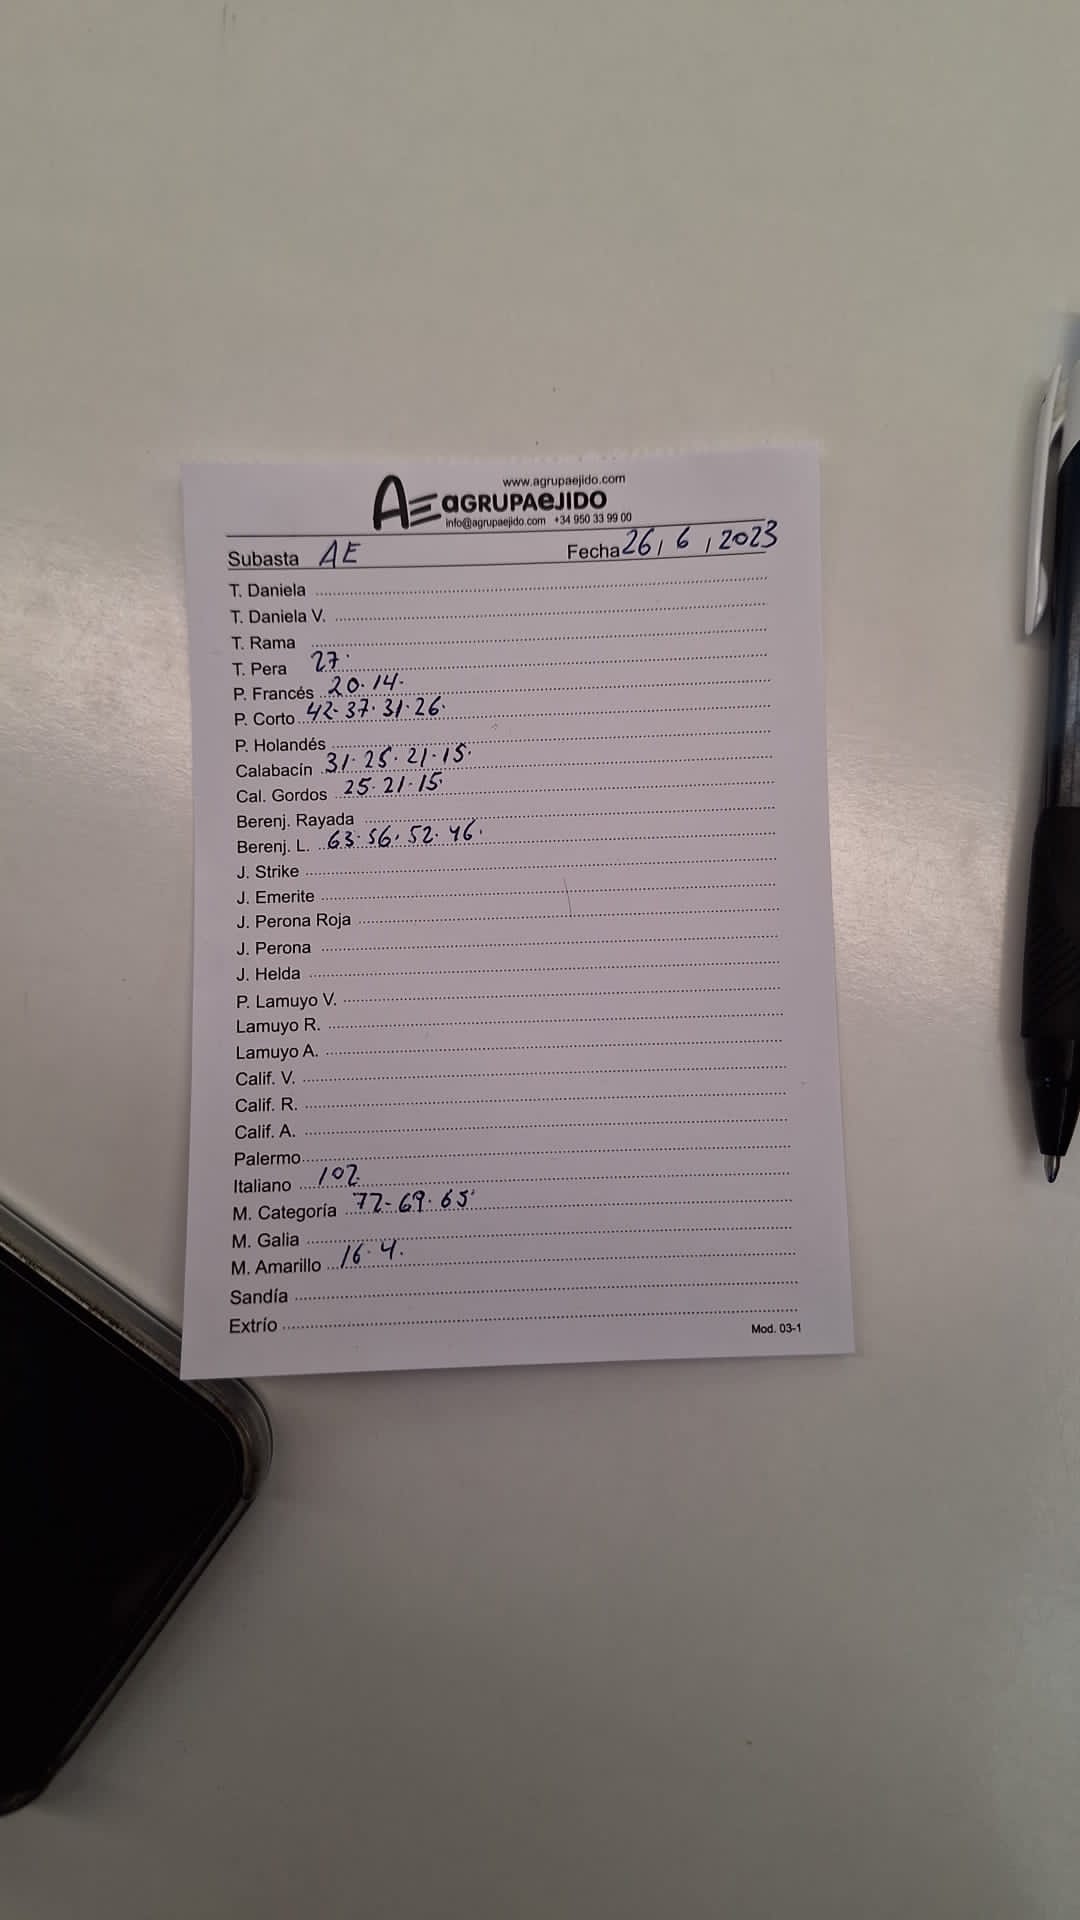 www.agrupaejido.com
AE aGRUPAeJIDO
info@agrupaejido.com +34 950 33 99 00
Subasta AE Fecha 26/6/2023
T. Daniela
T. Daniela V.
T. Rama
T. Pera 27.
P. Francés 20.14.
P. Corto 42.37.31.26.
P. Holandés
Calabacín 31.25.21.15.
Cal. Gordos 25.21.15.
Berenj. Rayada
Berenj. L. 63.56.52.46.
J. Strike
J. Emerite
J. Perona Roja
J. Perona
J. Helda
P. Lamuyo V.
Lamuyo R.
Lamuyo A.
Calif. V.
Calif. R.
Calif. A.
Palermo
Italiano 102
M. Categoría 72-69.65.
M. Galia
M. Amarillo 16.4.
Sandía
Extrío
Mod. 03-1